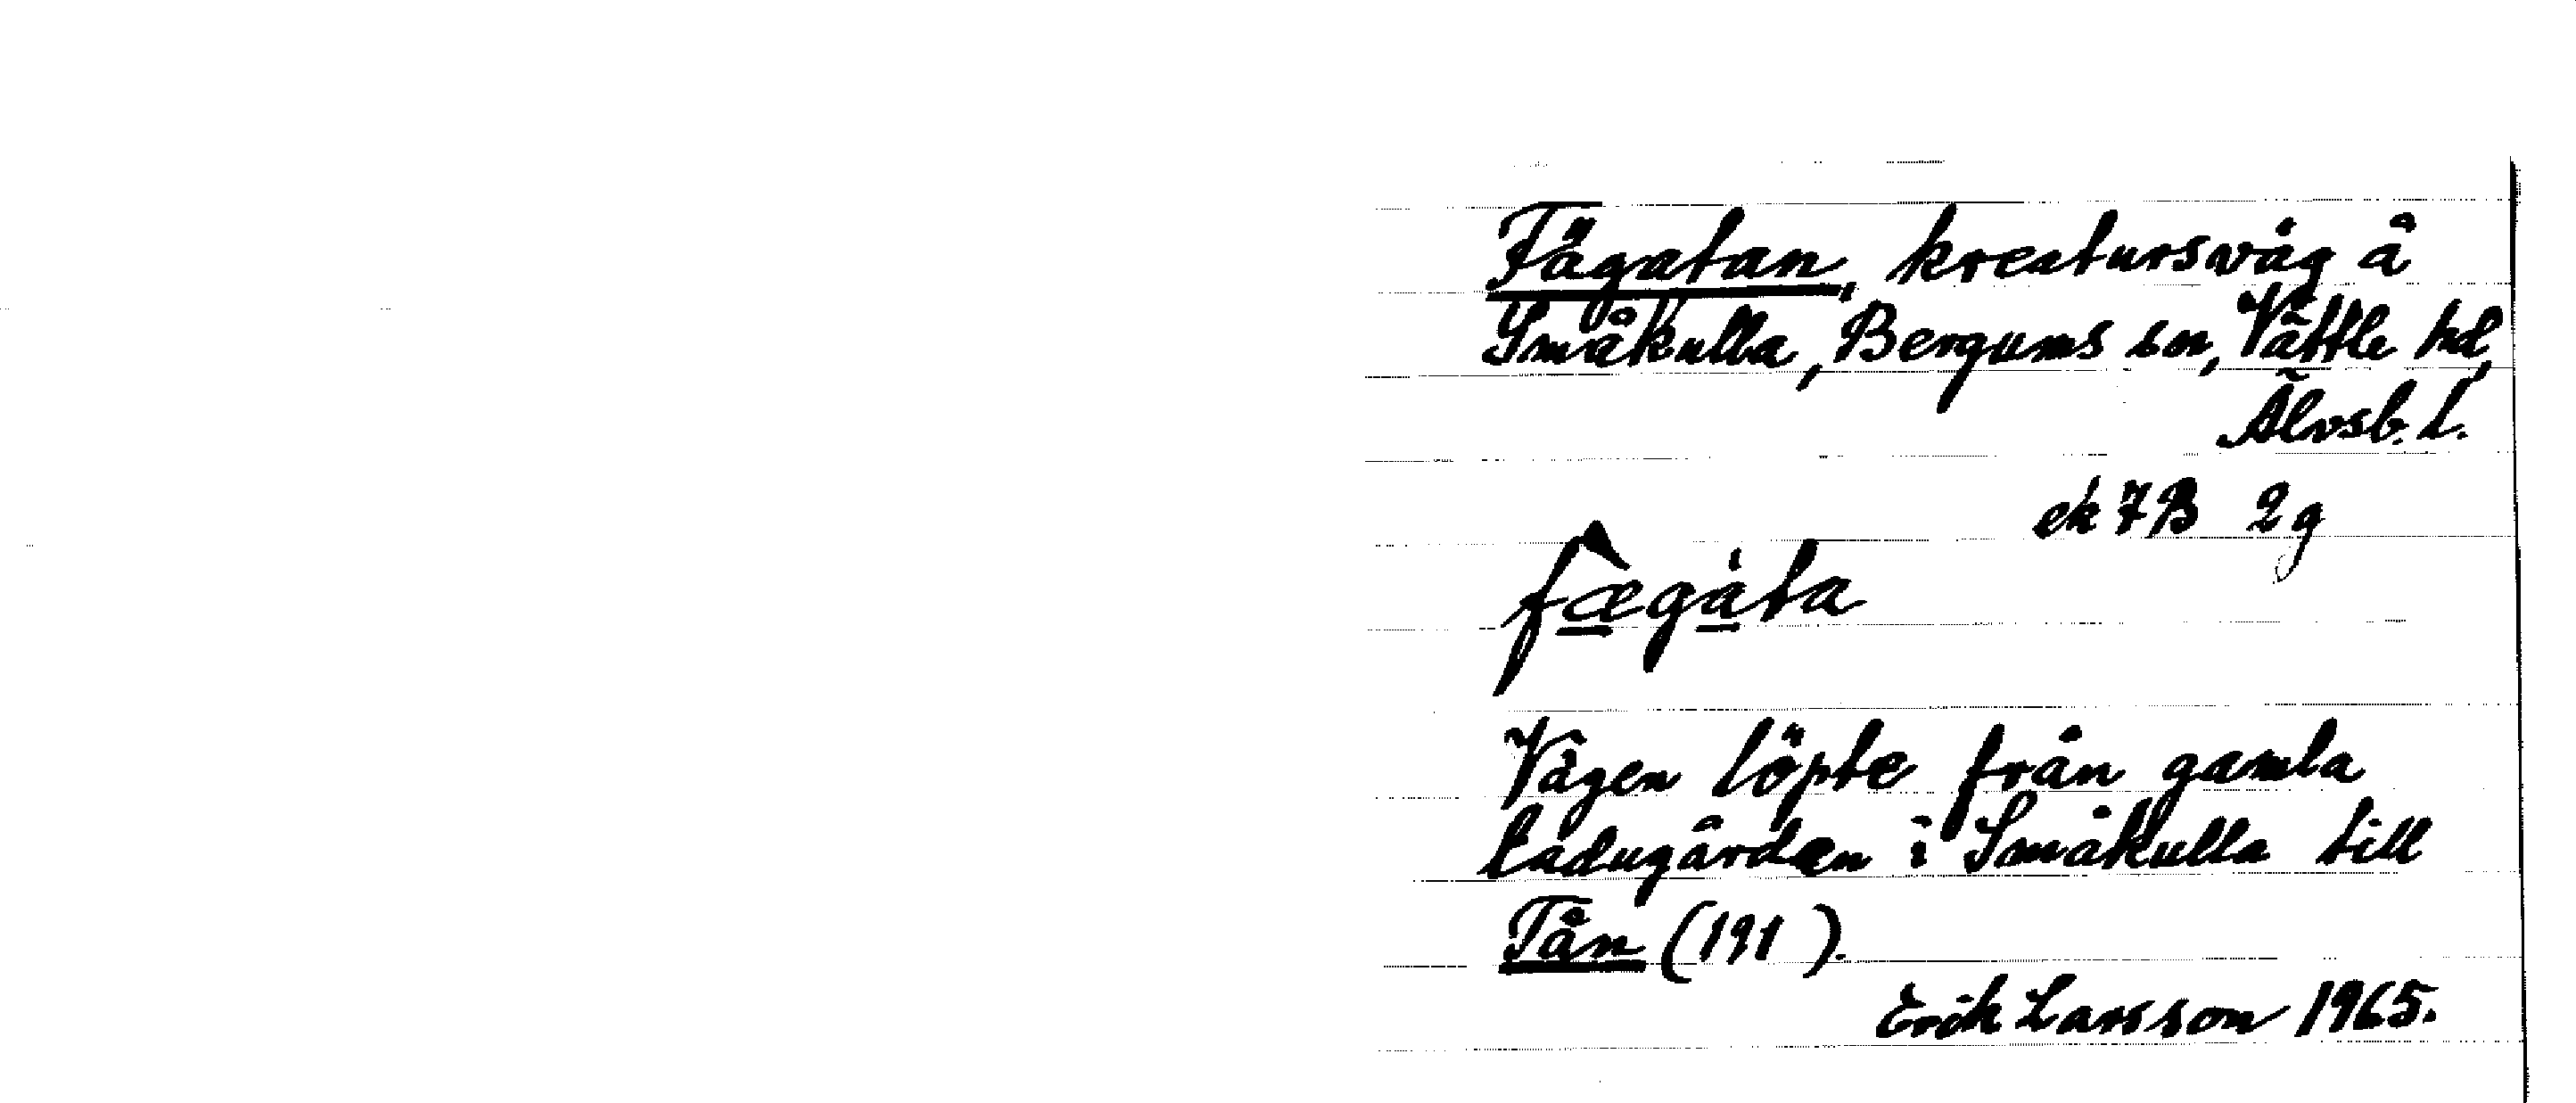 Fägatan, kreatursväg å
Småkulla, Bergums sn, Vättle hd,
Älvsb. L.
ek 7B 2g
fægàta
Vägen löpte från gamla
ladugården i Småkulla till
Tån (191).
Erik Larsson 1965.